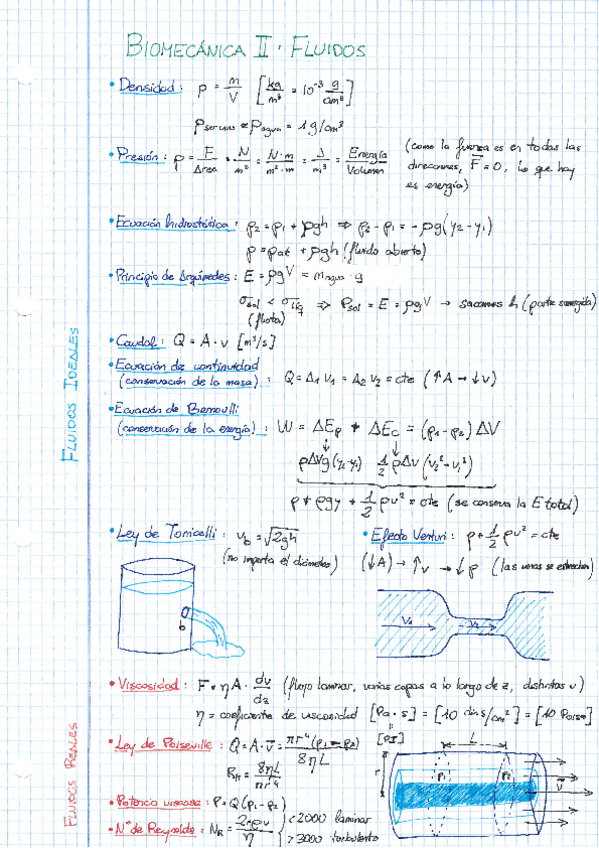 BIOMECÁNICA II · FLUIDOS
FLUIDOS IDEALES
• Densidad: ρ = m/V [kg/m³ = 10⁻³ g/cm³]
≈ ρagua = 1 g/cm³
• Presión: p = F/Área = N/m² = N·m/m²·m = J/m³ = Energía/Volumen (como la fuerza es en todas las
direcciones, F⃗ = 0, lo que hay
es energía)
• Ecuación hidrostática: p₂ = p₁ + ρgh ⇒ p₂ - p₁ = -ρg(y₂ - y₁)
p = pat + ρgh (fluido abierto)
• Principio de Arquímedes: E = ρgV = magua · g
σsol < σliq ⇒ Psol = E = ρgV → sacamos h (parte sumergida)
(flota)
• Caudal: Q = A · v [m³/s]
• Ecuación de continuidad
(conservación de la masa): Q = A₁ v₁ = A₂ v₂ = cte (↑A → ↓v)
• Ecuación de Bernoulli
(conservación de la energía): W = ΔEp + ΔEc = (p₁ - p₂) ΔV
ρΔVg (y₂-y₁) 1/2 ρΔv (v₂² - v₁²)
p + ρgy + 1/2 ρv² = cte (se conserva la E total)
• Ley de Torricelli: vb = √2gh
(no importa el diámetro)
• Efecto Venturi: p + 1/2 ρv² = cte
(↓A) → ↑v → ↓p (las venas se estrechan)
b
v₁
v₂
FLUIDOS REALES
• Viscosidad: F = ηA · dv/dz (flujo laminar, varias capas a lo largo de z, distintas v)
η = coeficiente de viscosidad [Pa · s] = [10 din s/cm²] = [10 Poise]
[PI]
• Ley de Poiseuille: Q = A · v̄ = πr⁴(p₁ - p₂)/8ηL
RH = 8ηL/πr⁴
• Potencia viscosa: P = Q(p₁ - p₂)
• Nº de Reynolds: NR = 2rρv/η { < 2000 laminar
> 3000 turbulento
L
r
p₁
p₂
v⃗